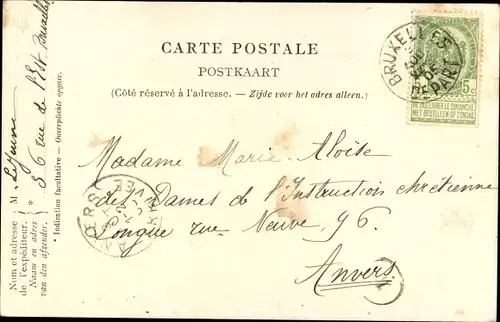 CARTE POSTALE
POSTKAART
(Côté réservé à l'adresse. – Zijde voor het adres alleen.)
BRUXELLES
DEPART
5
NE PAS LIVRER LE DIMANCHE
NIET BESTELLEN OP ZONDAG
Madame Marie Aloïse
des Dames de l'Instruction chrétienne
Longue rue Neuve, 96.
Anvers
ANTWERPEN
Nom et adresse M Lejeune
de l'expéditeur. * 36 rue de l'Est Bruxelles
Naam en adres
van den afzender.
* Indication facultative – Onverplichte opgave.